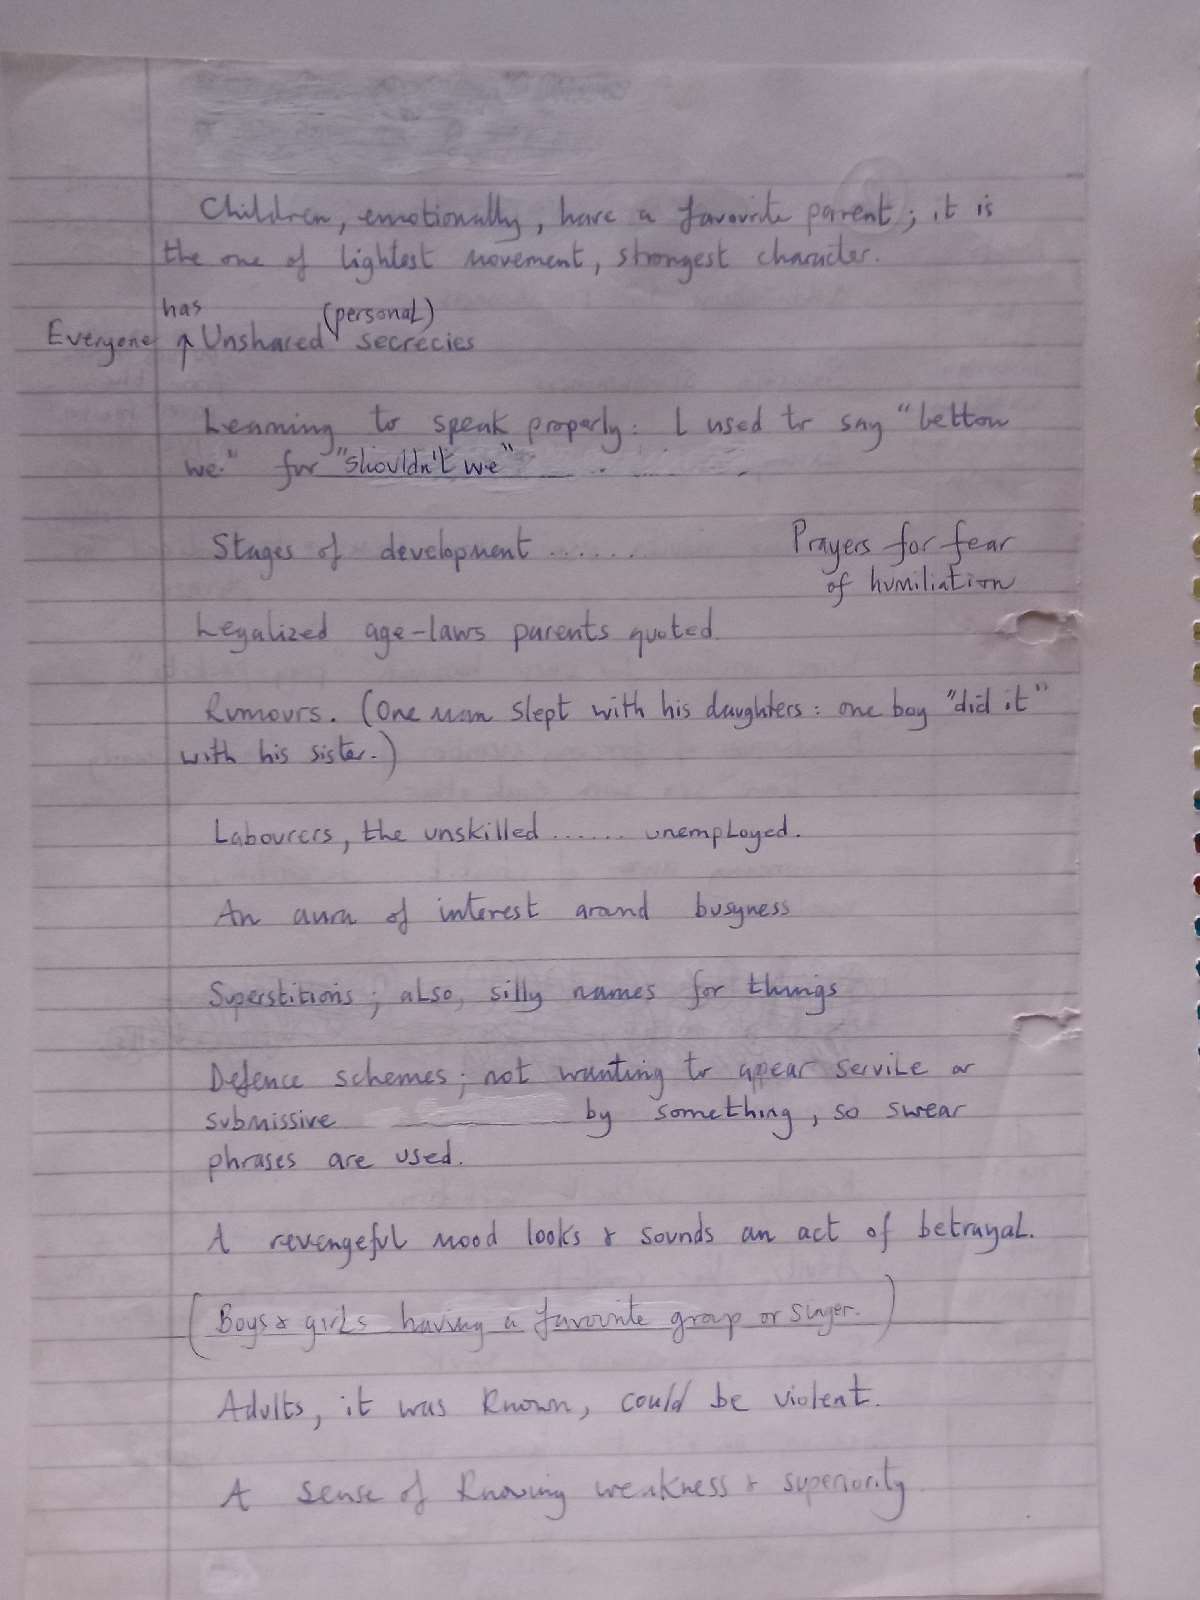 Children, emotionally, have a favourite parent; it is
the one of lightest movement, strongest character.
has (personal)
Everyone ↑ Unshared secrecies
Learning to speak properly: I used to say "bettow
we." for "shouldn't we"
Stages of development ...... Prayers for fear
of humiliation
Legalized age-laws parents quoted.
Rumours. (One man slept with his daughters: one boy "did it"
with his sister.)
Labourers, the unskilled ...... unemployed.
An aura of interest around busyness
Superstitions; also, silly names for things
Defence schemes; not wanting to apear servile or
submissive by something, so swear
phrases are used.
A revengeful mood looks & sounds an act of betrayal.
(Boys & girls having a favourite group or singer.)
Adults, it was known, could be violent.
A sense of knowing weakness & superiority.